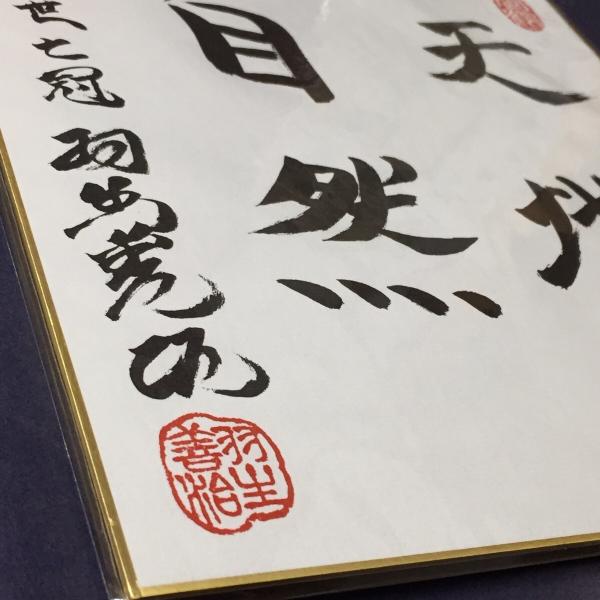 天地
自然
世七冠 羽生善治
羽生
善治